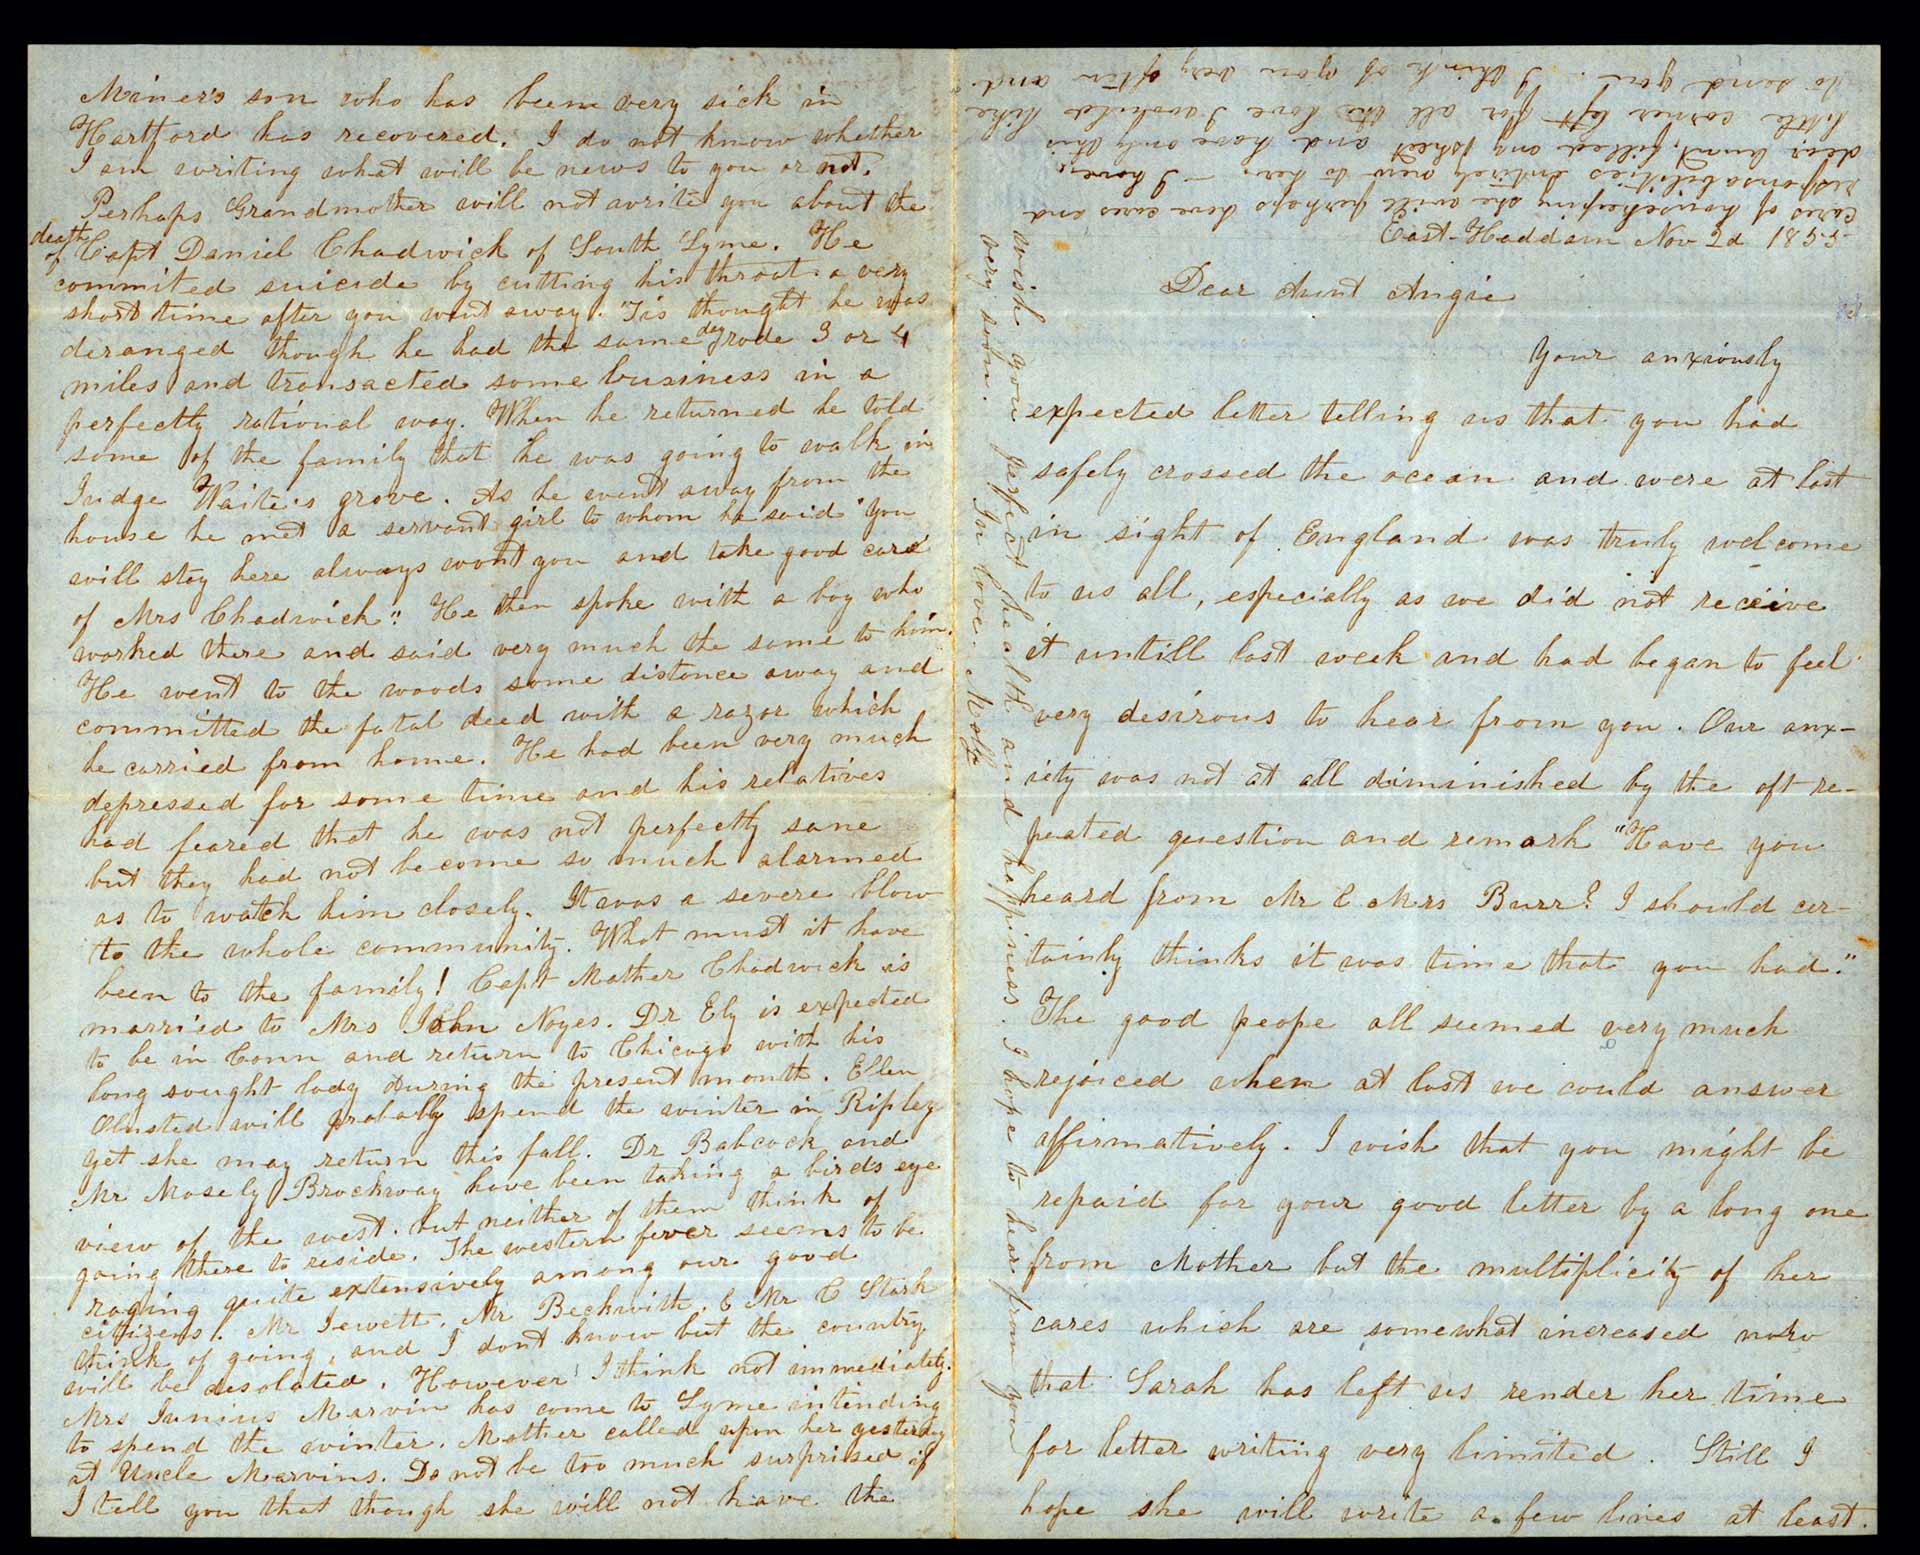 East-Haddam Nov 2d 1855-
Dear Aunt Angie
Your anxiously
expected letter telling us that you had
safely crossed the ocean and were at last
in sight of England was truly welcome
to us all, especially as we did not receive
it untill last week and had began to feel
very desirous to hear from you. Our anx-
iety was not at all diminished by the oft re-
peated question and remark "Have you
heard from Mr & Mrs Burr? I should cer-
tainly thinks it was time that you had."
The good peope all seemed very much
rejoiced when at last we could answer
affirmatively. I wish that you might be
repaid for your good letter by a long one
from Mother but the multiplicity of her
cares which are somewhat increased now
that Sarah has left us render her time
for letter writing very limited. Still I
hope she will write a few lines at least.
Miner's son who has been very sick in
Hartford has recovered. I do not know whether
I am writing what will be news to you or not.
Perhaps Grandmother will not write you about the
death of Capt Daniel Chadwick of South Lyme. He
commited suicide by cutting his throat a very
short time after you went away. 'Tis thought he was
deranged though he had the same day rode 3 or 4
miles and transacted some business in a
perfectly rational way. When he returned he told
some of the family that he was going to walk in
Judge Waite's grove. As he went away from the
house he met a servant girl to whom he said "You
will stay here always wont you and take good care
of Mrs Chadwick". He then spoke with a boy who
worked there and said very much the same to him.
He went to the woods some distance away and
committed the fatal deed with a razor which
he carried from home. He had been very much
depressed for some time and his relatives
had feared that he was not perfectly sane
but they had not become so much alarmed
as to watch him closely. It was a severe blow
to the whole community. What must it have
been to the family! Capt Mather Chadwick is
married to Mrs John Noyes. Dr Ely is expected
to be in Conn and return to Chicago with his
long sought lady during the present month. Ellen
Olmsted will probally spend the winter in Ripley
yet she may return this fall. Dr Babcock and
Mr Mosely Brockway have been taking a birds eye
view of the west. but neither of them think of
going there to reside. The western fever seems to be
raging quite extensively among our good
citizens. Mr Jewett. Mr Beckwith. & Mr C Stark
think of going, and I dont know but the country
will be desolated. However I think not immediately.
Mrs Junius Marvin has come to Lyme intending
to spend the winter. Mother called upon her yesterday
at Uncle Marvins. Do not be too much surprised if
I tell you that though she will not have the
cares of housekeeping she will perhaps have cares and
responsabilities entirely new to her. — I have,
dear Aunt, filled my sheet and have only this
little corner left for all the love I would like
to send you. I think of you very often and
wish you perfect health and happiness. I hope to hear from you
very soon. In love. Molly